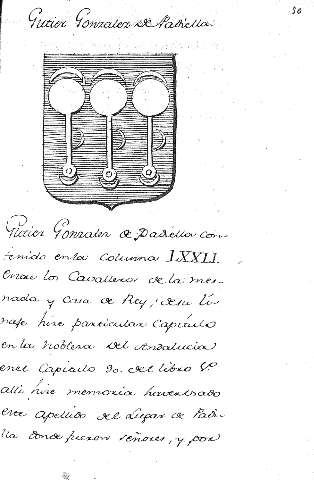 Gutier Gonzalez de Padiella.
30
Gutier Gonzalez de Padiella con-
tenido en la columna LXXII.
entre los Cavalleros de la mes-
nada y casa de Rey; de su li-
naje hice particular Capitulo
en la nobleza del Andalucia
en el Capitulo 90. del libro
alli hice memoria haver
este apellido del Lugar de Padi-
lla donde fueron señores, y por